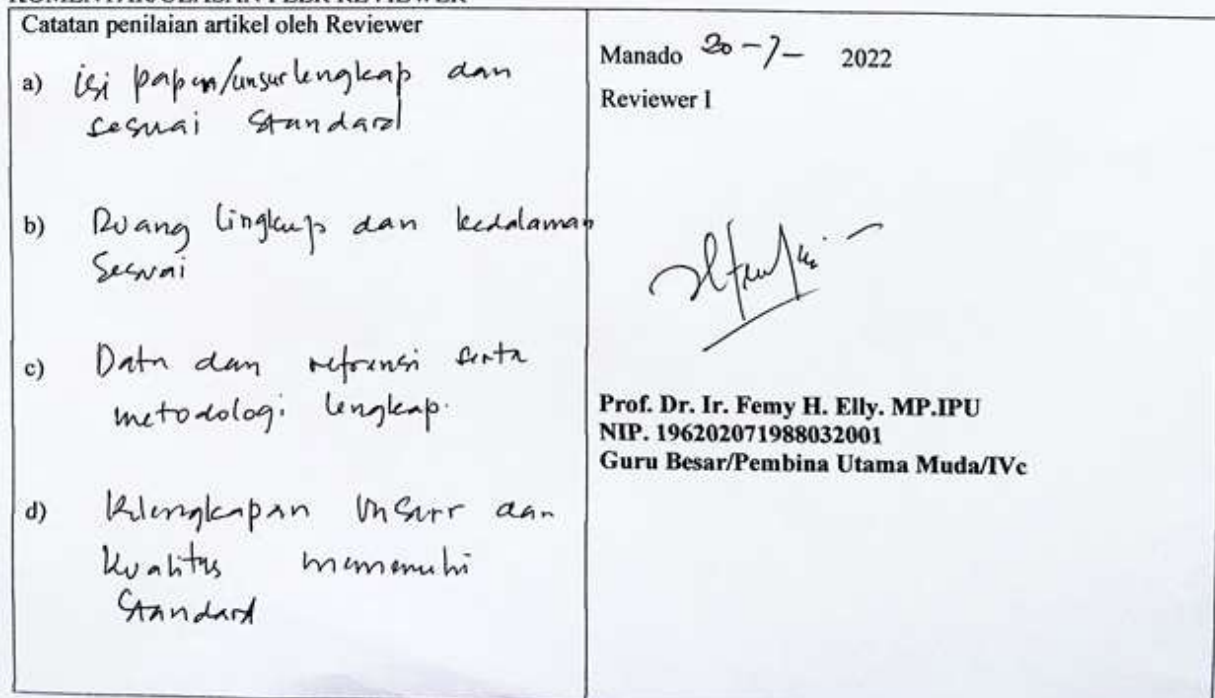 KOMENTAR/ULASAN PEER REVIEWER
Catatan penilaian artikel oleh Reviewer
a) isi paper/unsur lengkap dan
sesuai Standard
b) Ruang lingkup dan kedalaman
Sesuai
c) Data dan refrensi serta
metodologi lengkap.
d) Kelengkapan Unsur dan
Kualitas memenuhi
Standard
Manado 20-7- 2022
Reviewer I
Prof. Dr. Ir. Femy H. Elly. MP.IPU
NIP. 196202071988032001
Guru Besar/Pembina Utama Muda/IVc